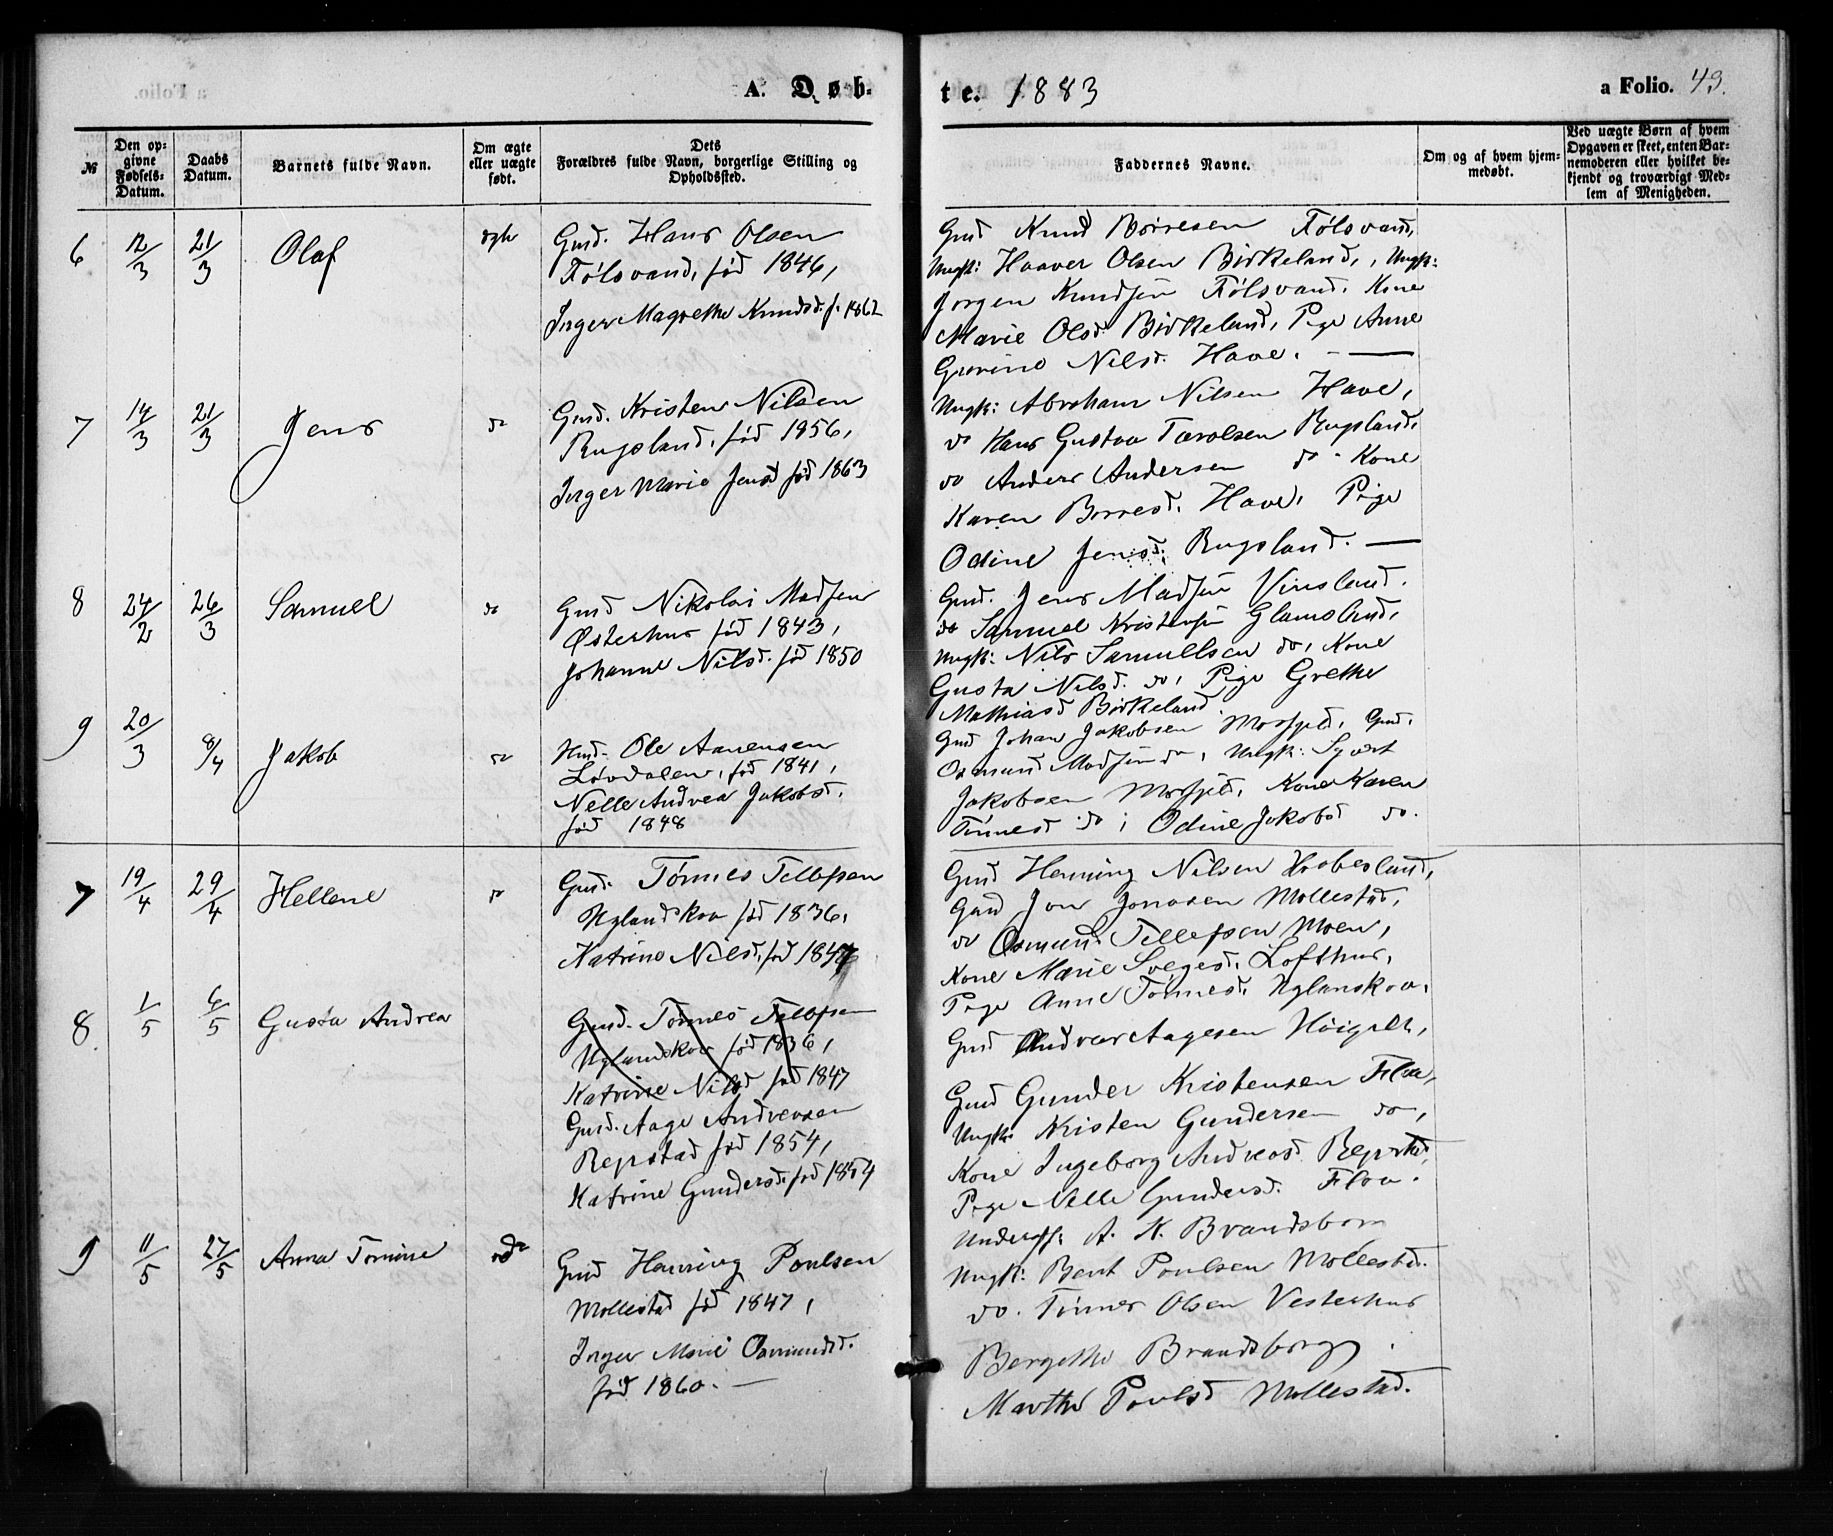 A. Døb-
te. 1883
a Folio. 43.
№
Den op-
givne
Fødsels-
Datum.
Daabs
Datum.
Barnets fulde Navn.
Om ægte
eller uægte
født.
Dets
Forældres fulde Navn, borgerlige Stilling og
Opholdssted.
Faddernes Navne.
Om og af hvem hjem-
medøbt.
Ved uægte Børn af hvem
Opgaven er skeet, enten Bar-
nemoderen eller hvilket be-
kjendt og troværdigt Med-
lem af Menigheden.
6 12/3 21/3 Olaf ægte
Gmd. Hans Olsen
Fölsvand, föd 1846,
Inger Magrethe Knudsd. f. 1862
Gmd Knud Börresen Fölsvand,
Ungk: Haaver Olsen Birkeland, Ungk:
Jörgen Knudsen Fölsvand. Kone
Marie Olsd. Birkeland, Pige Anne
Gurine Nilsd. Have. -
7 14/3 21/3 Jens do
Gmd. Kristen Nilsen
Rugsland, föd 1856,
Inger Marie Jensd föd 1863
Ungk: Abraham Nilsen Have,
do Hans Gustav Tarolsen Rugsland,
do Anders Andersen do - Kone
Karen Börresd. Have, Pige
Odine Jensd. Rugsland. -
8 24/2 26/3 Samuel do
Gmd Nikolai Madsen
Østerhus föd 1843,
Johanne Nilsd. föd 1850
Gmd. Jens Madsen Vinsland.
do Samuel Kristensen Glamsland,
Ungk: Nils Samuelsen do, Kone
Gusta Nilsd. do, Pige Grethe
Mathiasd Birkeland.
9 20/3 8/4 Jakob do
Hmd. Ole Aanensen
Lövdalen, föd 1841,
Nelle Andrea Jakobsd.
föd 1848
Gmd Johan Jakobsen Mosfjeld, Gmd.
Osmund Madsen do, Ungk: Syvert
Jakobsen Mosfjeld, Kone Karen
Tönnesd do, Odine Jakobsd do.
7 19/4 29/4 Hellene do
Gmd. Tönnes Tellefsen
Uglandskov föd 1836,
Katrine Nilsd. föd 1847
Gmd Henning Nilsen Hobesland,
Gmd Jon Jonasen Mollestad,
do Osmund Tellefsen Moen,
Kone Marie Sveges. Lofthus,
Pige Anne Tönnesd. Uglanskov.
8 1/5 6/5 Gusta Andrea
Gmd. Tönnes Tellefsen
Uglandskov föd 1836,
Katrine Nilsd föd 1847
Gmd. Aage Andreasen
Repstad föd 1854,
Katrine Gundersd. föd 1854
Gmd Andreas Aagesen
Gmd Gunder Kristensen Flaa,
Ungk: Kristen Gundersen do,
Kone Ingeborg Andreasd Repstad,
Pige Nelle Gundersd. Flaa.
9 11/5 27/5 Anna Tomine do
Gmd Henning Poulsen
Mollestad föd 1847,
Inger Marie Osmundsd.
föd 1860. -
Underoff: A. K. Brandsborg
Ungk: Bent Poulsen Mollestad.
do. Tönnes Olsen Vesterhus
Bergethe Brandsborg.
Marthe Poulsd Mollestad.